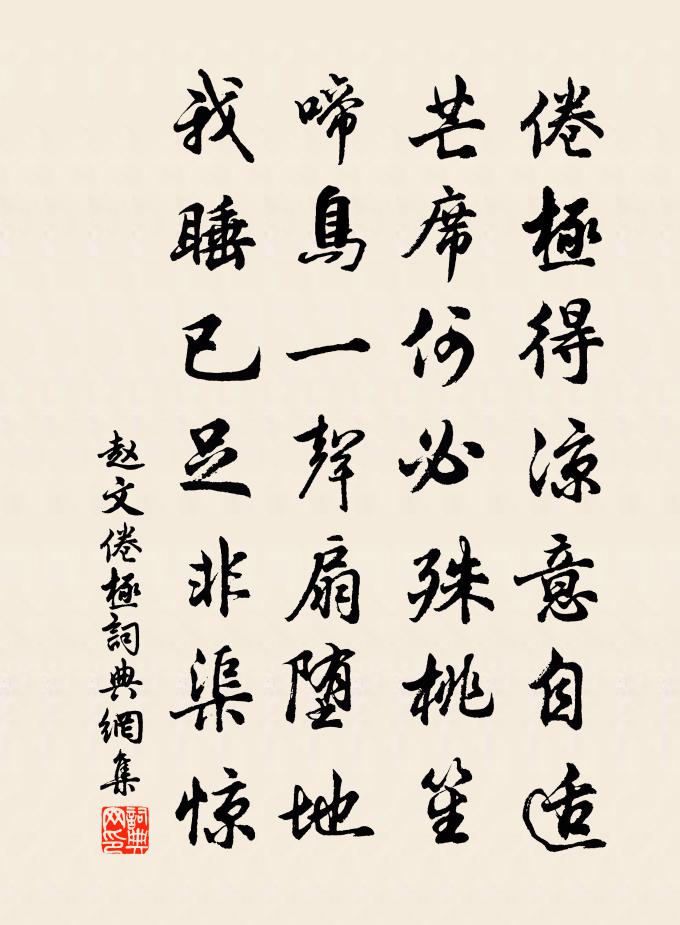 倦極得涼意自适
芒席何必殊桃笙
啼鳥一聲扇堕地
我睡已足非渠惊
赵文倦極詞典網集
詞典网印